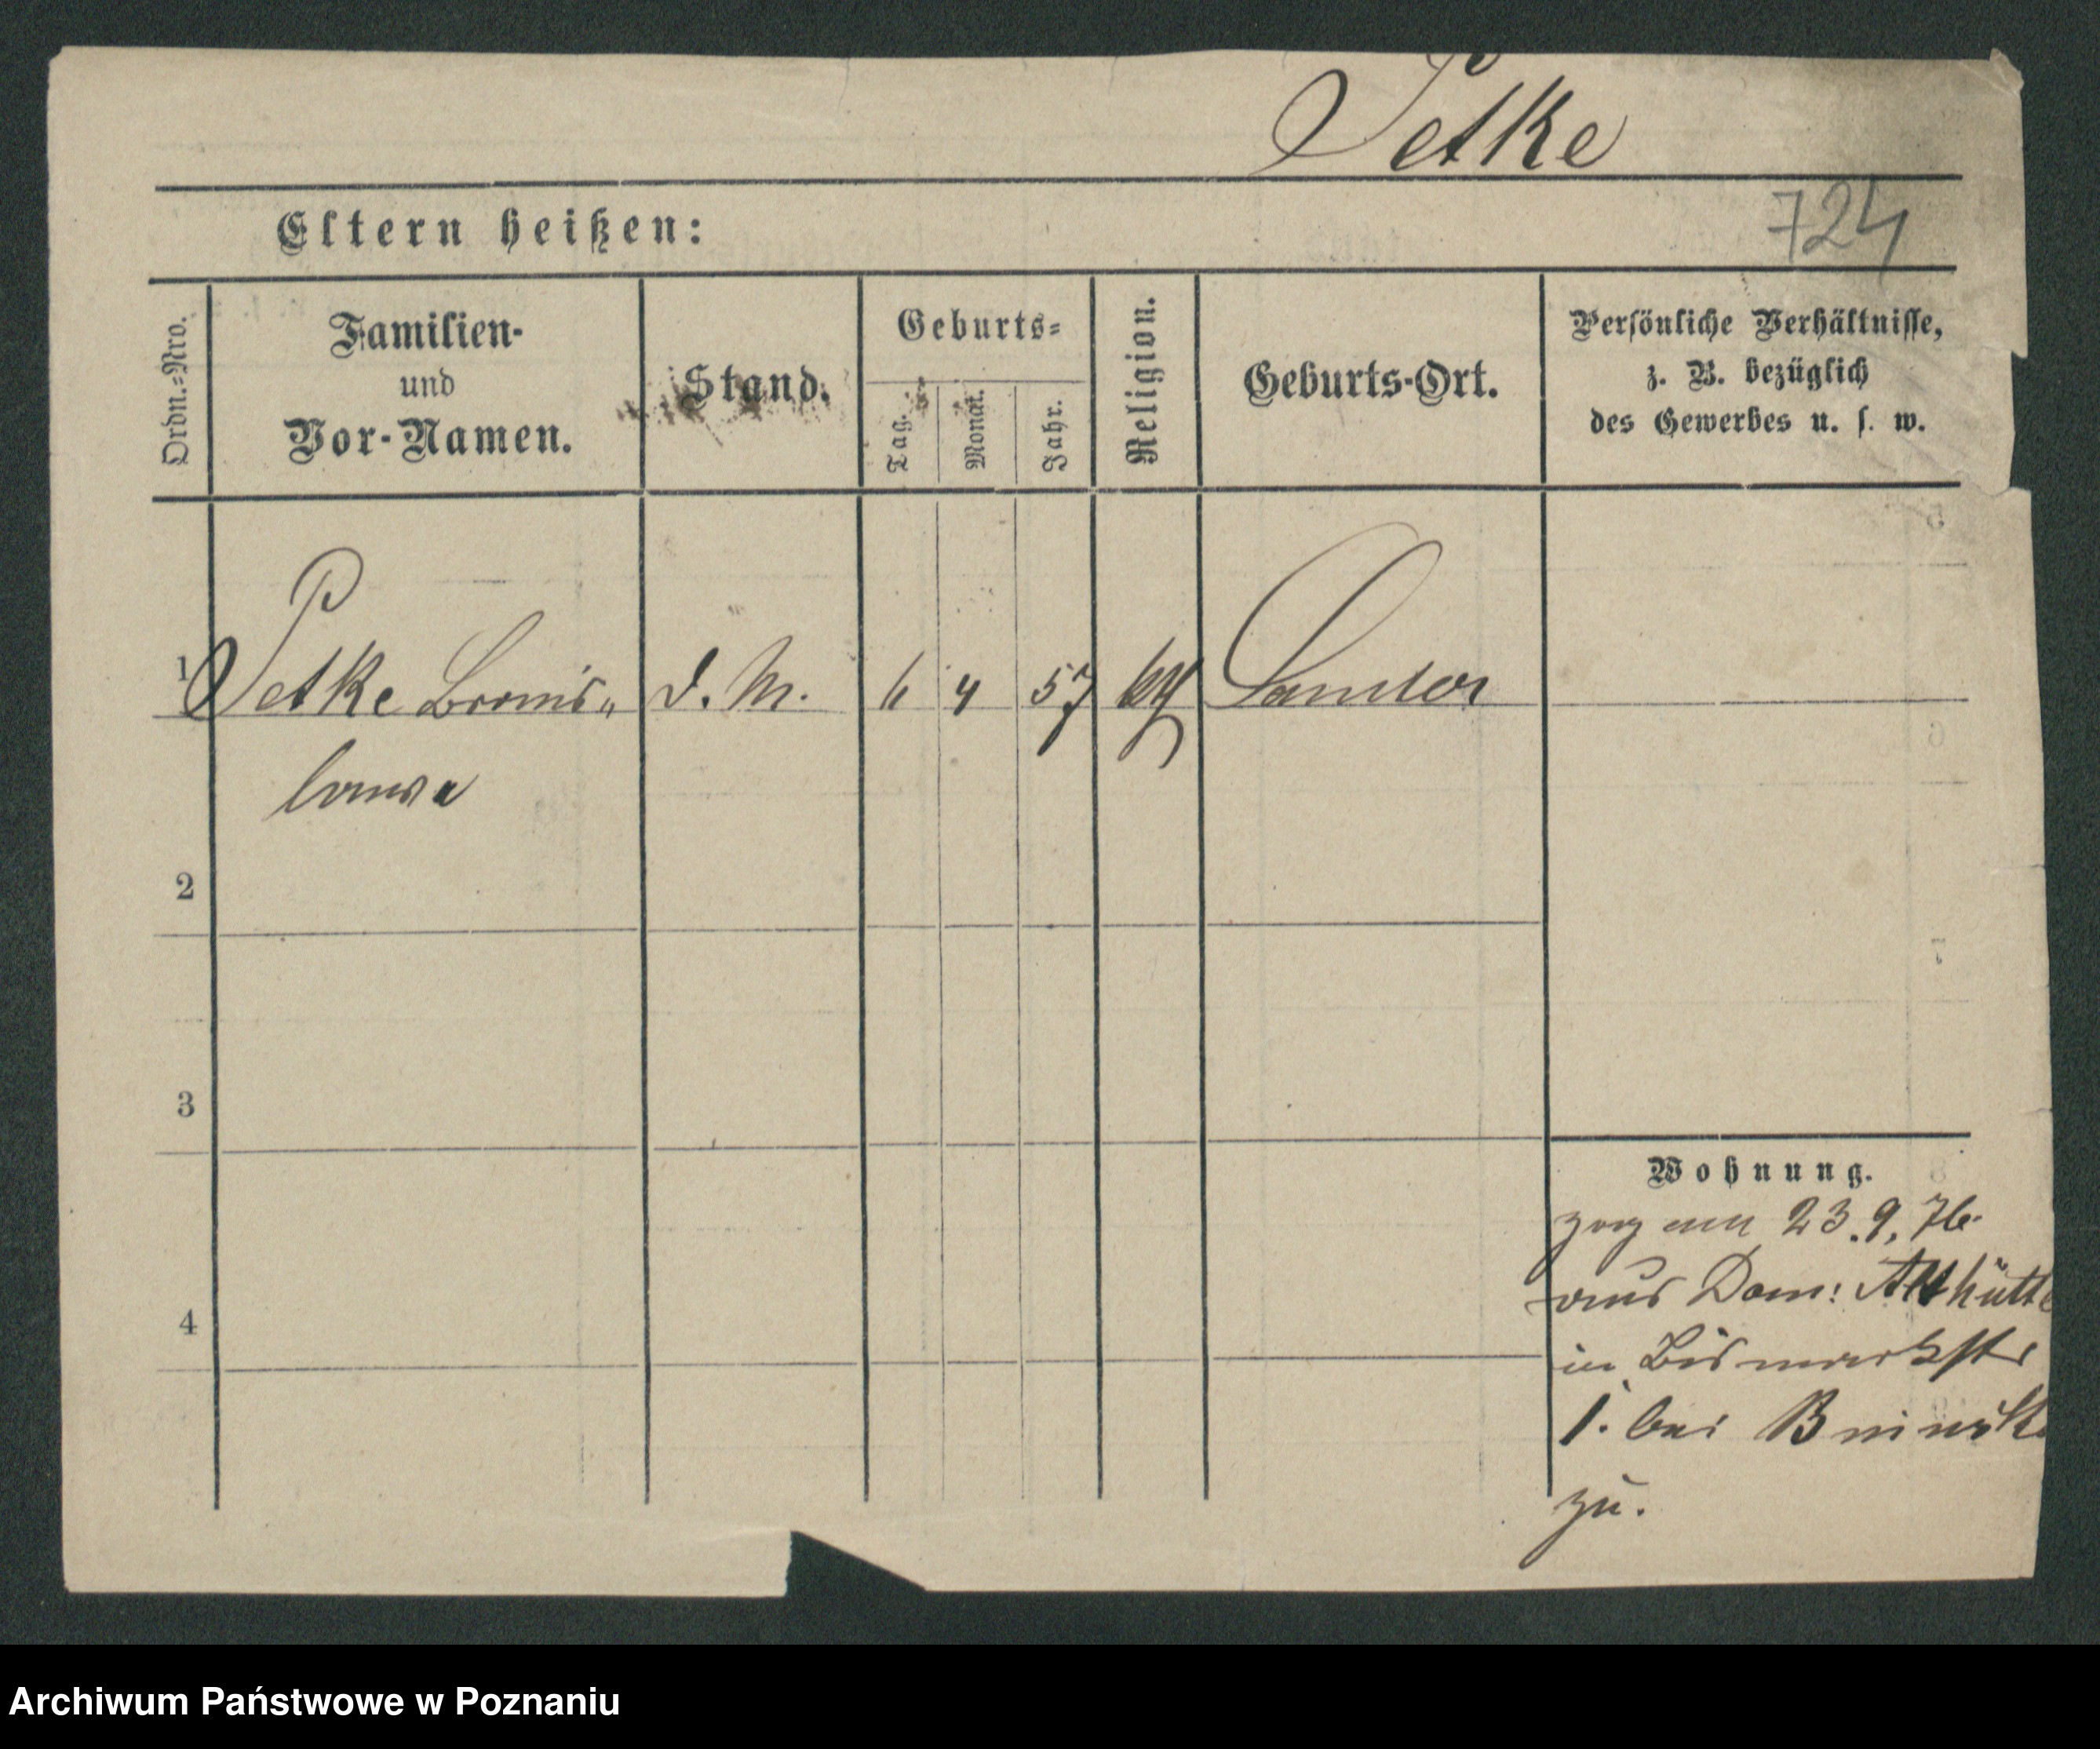 Petke
724
Eltern heißen:
Ordn.=Nro.
Familien-
und
Vor-Namen.
Stand.
Geburts=
Tag.
Monat.
Jahr.
Religion.
Geburts-Ort.
Persönliche Verhältnisse,
z. B. bezüglich
des Gewerbes u. s. w.
1 Petke Bronis„ D. M. 6 4 57 kth
lawa
2
3
4
Wohnung.
zog am 23.9.76.
aus Dom: Althütte
in Bismarkstr
1. bei Bninski
zu.
Archiwum Państwowe w Poznaniu